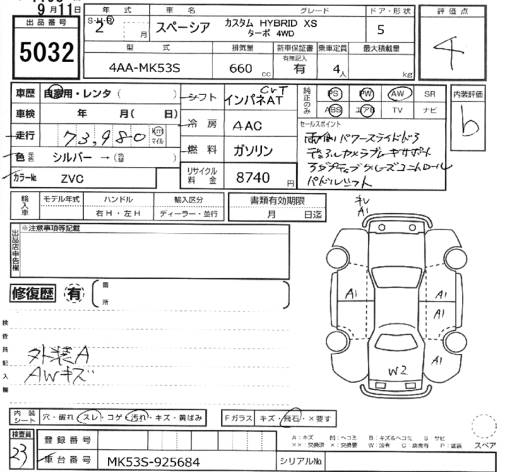 9月11日
出品番号
5032
年式 車名 グレード ドア・形状
S・H・R 2年 月 スペーシア カスタム HYBRID XS
ターボ 4WD 5
型式 排気量 新車保証書 乗車定員 最大積載量
有無記入
4AA-MK53S 660cc 有 4人 kg
評価点
4
車歴 自家用・レンタ( )
車検 年 月( 日)
走行 73,980 Km マイル
色 元色 シルバー →(色替 )
カラーNo ZVC
シフト CVT
インパネAT
冷房 AAC
燃料 ガソリン
リサイクル料金 8740 円
純正のみ PS PW AW SR
ABS エアB TV ナビ
セールスポイント
両側パワースライドドア
デュアルカメラブレーキサポート
アダプティブクルーズコントロール
パドルシフト
内装評価
b
輸入車 モデル年式 ハンドル 輸入区分
右H・左H ディーラー・並行
書類有効期限
月 日迄
出品店申告欄
※注意事項等記載
修復歴 有 箇所
検査員記入欄
外装A
AWキズ
A1
A1
A1
W2
内装シート 穴・破れ・スレ・コゲ・汚れ・キズ・黄ばみ
Fガラス キズ・飛石・×要す
A:キズ
スペア
検査員
23
登録番号
車台番号 MK53S-925684
シリアルNo